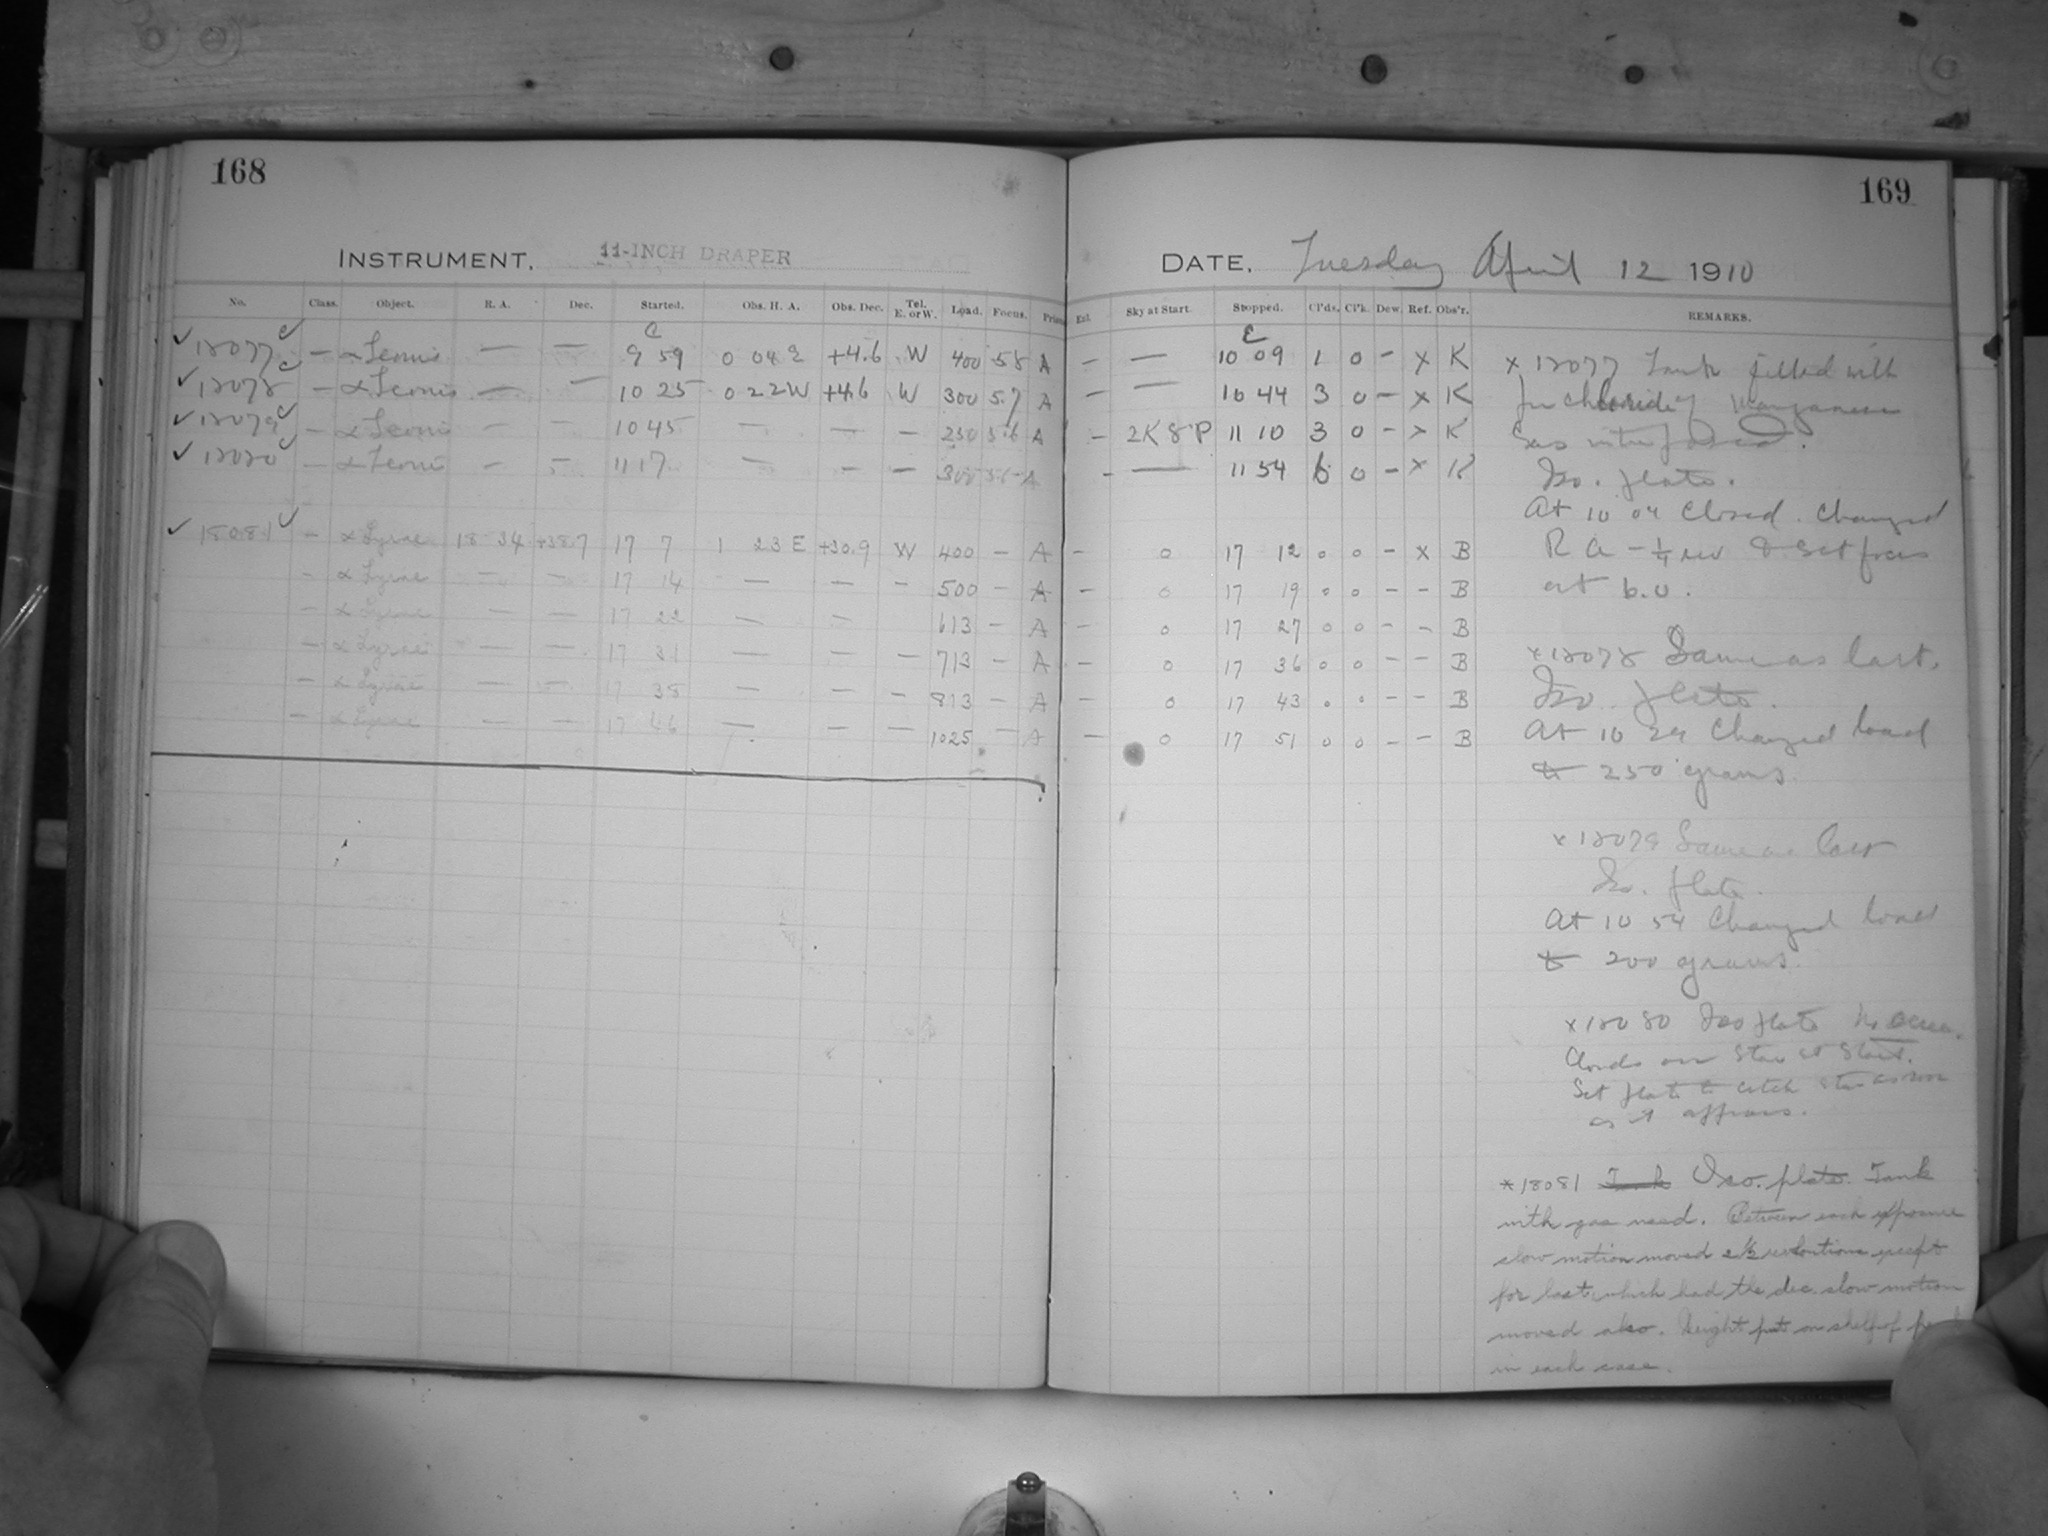 168
INSTRUMENT. 11-INCH DRAPER
No. Class. Object. R. A. Dec. Started. Obs. H. A. Obs. Dec. Tel. E. or W. Load. Focus. Prism
C
18077 — α Leonis — — 9 59 0 04 E +4.6 W 400 5.8 A
18078 — α Leonis — — 10 25 0 22 W +4.6 W 300 5.7 A
18079 — α Leonis — — 10 45 — — — 250 5.6 A
18080 — α Leonis — — 11 17 — — — 300 5.6 A
18081 — α Lyrae 18 34 +38.7 17 7 1 23 E +30.9 W 400 — A
— α Lyrae — — 17 14 — — — 500 — A
— α Lyrae — — 17 22 — — 613 — A
— α Lyrae — — 17 31 — — — 713 — A
— α Lyrae — — 17 38 — — — 813 — A
— α Lyrae — — 17 46 — — — 1025 — A
169
DATE. Tuesday April 12 1910
Exl. Sky at Start. Stopped. Cl'ds. Cl'k. Dew. Ref. Obs'r. REMARKS.
— — 10 09 1 0 — x K
— — 10 44 3 0 — x K
— 2K 8 P 11 10 3 0 — x K
— — 11 54 6 0 — x K
— 0 17 12 0 0 — x B
— 0 17 19 0 0 — — B
— 0 17 27 0 0 — — B
— 0 17 36 0 0 — — B
— 0 17 43 0 0 — — B
— 0 17 51 0 0 — — B
x 18077 Tank filled with
chloride of Manganese
Iso. plate.
At 10 04 Closed. Changed
R A — ¼ rev & set focus
at 6.0.
x 18078 Same as last.
Iso. plate.
At 10 29 Changed load
to 250 grams.
x 18079 Same as last
Iso. plate.
At 10 54 Changed load
to 200 grams.
x 18080 Iso plate No
Clouds over Star at Start.
Set plate to catch star as soon
as it appears.
* 18081 Tank Iso. plate. Tank
with gas used. Between each exposure
slow motion moved 2½ revolutions except
for last which had the dec. slow motion
moved also. Weight put on shelf of
in each case.